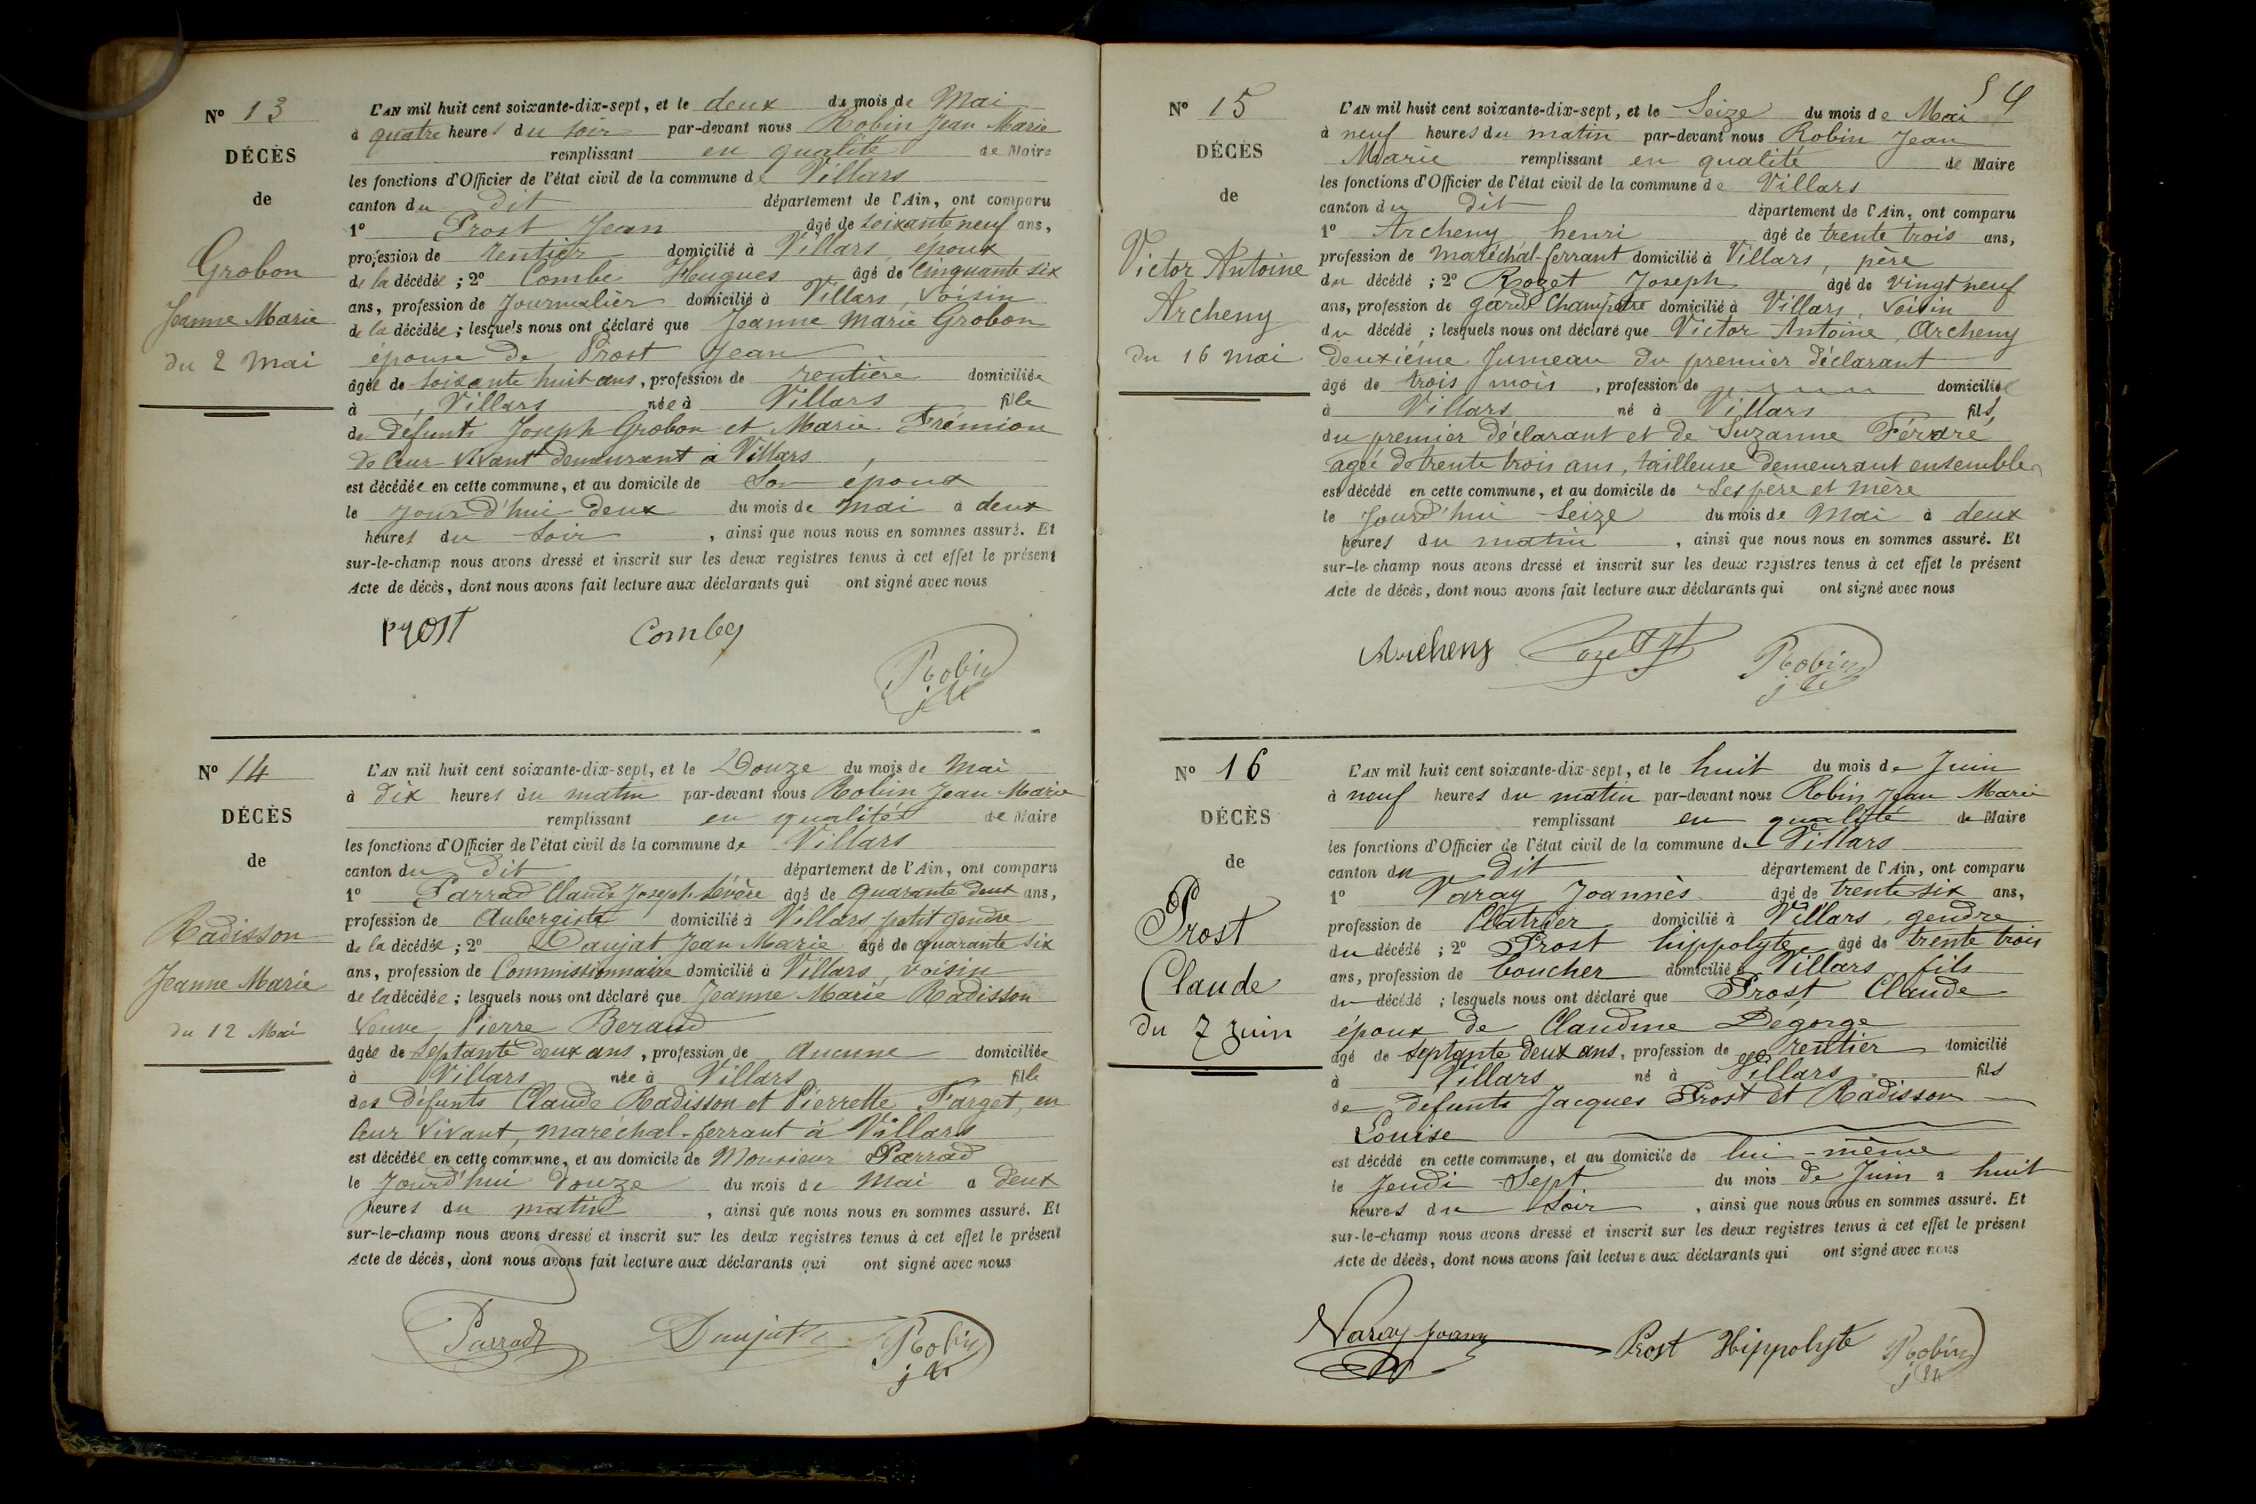 Nº 13
DÉCÈS
de
Grobon
Jeanne Marie
du 2 Mai
L'AN mil huit cent soixante-dix-sept, et le deux du mois de Mai
à quatre heures du soir par-devant nous Robin Jean Marie
remplissant en qualité de Maire
les fonctions d'Officier de l'état civil de la commune de Villars
canton du dit département de l'Ain, ont comparu
1º Prost Jean âgé de soixante neuf ans,
profession de rentier domicilié à Villars, époux
de la décédée ; 2º Combe Hugues âgé de Cinquante six
ans, profession de Journalier domicilié à Villars, voisin
de la décédée ; lesquels nous ont déclaré que Jeanne Marie Grobon
épouse de Prost Jean
âgée de soixante huit ans, profession de rentière domiciliée
à Villars née à Villars fille
de défunts Joseph Grobon et Marie Frémion
de leur vivant demeurant à Villars
est décédée en cette commune, et au domicile de Son époux
le jour d'hui deux du mois de Mai à deux
heures du Soir , ainsi que nous nous en sommes assuré. Et
sur-le-champ nous avons dressé et inscrit sur les deux registres tenus à cet effet le présent
Acte de décès, dont nous avons fait lecture aux déclarants qui ont signé avec nous
Prost Combe
Robin
j M
Nº 14
DÉCÈS
de
Radisson
Jeanne Marie
du 12 Mai
L'AN mil huit cent soixante-dix-sept, et le Douze du mois de Mai
à dix heures du matin par-devant nous Robin Jean Marie
remplissant en qualité de Maire
les fonctions d'Officier de l'état civil de la commune de Villars
canton du dit département de l'Ain, ont comparu
1º Parrad Claude Joseph Sévère âgé de quarante deux ans,
profession de Aubergiste domicilié à Villars, petit gendre
de la décédée ; 2º Daujat Jean Marie âgé de quarante six
ans, profession de Commissionnaire domicilié à Villars, voisin
de la décédée ; lesquels nous ont déclaré que Jeanne Marie Radisson
Veuve, Pierre Beraud
âgée de septante deux ans, profession de Aucune domiciliée
à Villars née à Villars fille
des défunts Claude Radisson et Pierrette Farget, en
leur vivant, maréchal-ferrant à Villars
est décédée en cette commune, et au domicile de Monsieur Parrad
le Jourd'hui Douze du mois de Mai à deux
heures du matin , ainsi que nous nous en sommes assuré. Et
sur-le-champ nous avons dressé et inscrit sur les deux registres tenus à cet effet le présent
Acte de décès, dont nous avons fait lecture aux déclarants qui ont signé avec nous
Parrad Daujat Robin
j M
54
Nº 15
DÉCÈS
de
Victor Antoine
Archeny
du 16 mai
L'AN mil huit cent soixante-dix-sept, et le Seize du mois de Mai
à neuf heures du matin par-devant nous Robin Jean
Marie remplissant en qualité de Maire
les fonctions d'Officier de l'état civil de la commune de Villars
canton du dit département de l'Ain, ont comparu
1º Archeny henri âgé de trente trois ans,
profession de maréchal-ferrant domicilié à Villars, père
du décédé ; 2º Rozet Joseph âgé de vingt neuf
ans, profession de garde Champêtre domicilié à Villars, Voisin
du décédé ; lesquels nous ont déclaré que Victor Antoine, Archeny
deuxième Jumeau du premier déclarant
âgé de trois mois , profession de domicilié
à Villars né à Villars fils
du premier déclarant et de Suzanne Férdré
agée de trente trois ans, tailleuse demeurant ensemble,
est décédé en cette commune, et au domicile de Ses père et mère
le Jourd'hui Seize du mois de Mai à deux
heures du matin , ainsi que nous nous en sommes assuré. Et
sur-le-champ nous avons dressé et inscrit sur les deux registres tenus à cet effet le présent
Acte de décès, dont nous avons fait lecture aux déclarants qui ont signé avec nous
Archeny Rozet Robin
j M
Nº 16
DÉCÈS
de
Prost
Claude
du 7 juin
L'AN mil huit cent soixante-dix-sept, et le huit du mois de Juin
à neuf heures du matin par-devant nous Robin Jean Marie
remplissant en qualité de Maire
les fonctions d'Officier de l'état civil de la commune de Villars
canton du dit département de l'Ain, ont comparu
1º Varay Joannès âgé de trente six ans,
profession de Platrier domicilié à Villars, gendre
du décédé ; 2º Prost hippolyte âgé de trente trois
ans, profession de boucher domicilié à Villars, fils
du décédé ; lesquels nous ont déclaré que Prost Claude
époux de Claudine Degorge
âgé de septante deux ans, profession de rentier domicilié
à Villars né à Villars fils
de defunts Jacques Prost et Radisson
Louise
est décédé en cette commune, et au domicile de lui-même
le Jeudi Sept du mois de Juin à huit
heures du Soir , ainsi que nous nous en sommes assuré. Et
sur-le-champ nous avons dressé et inscrit sur les deux registres tenus à cet effet le présent
Acte de décès, dont nous avons fait lecture aux déclarants qui ont signé avec nous
Varay Joanny Prost Hippolyte Robin
j M